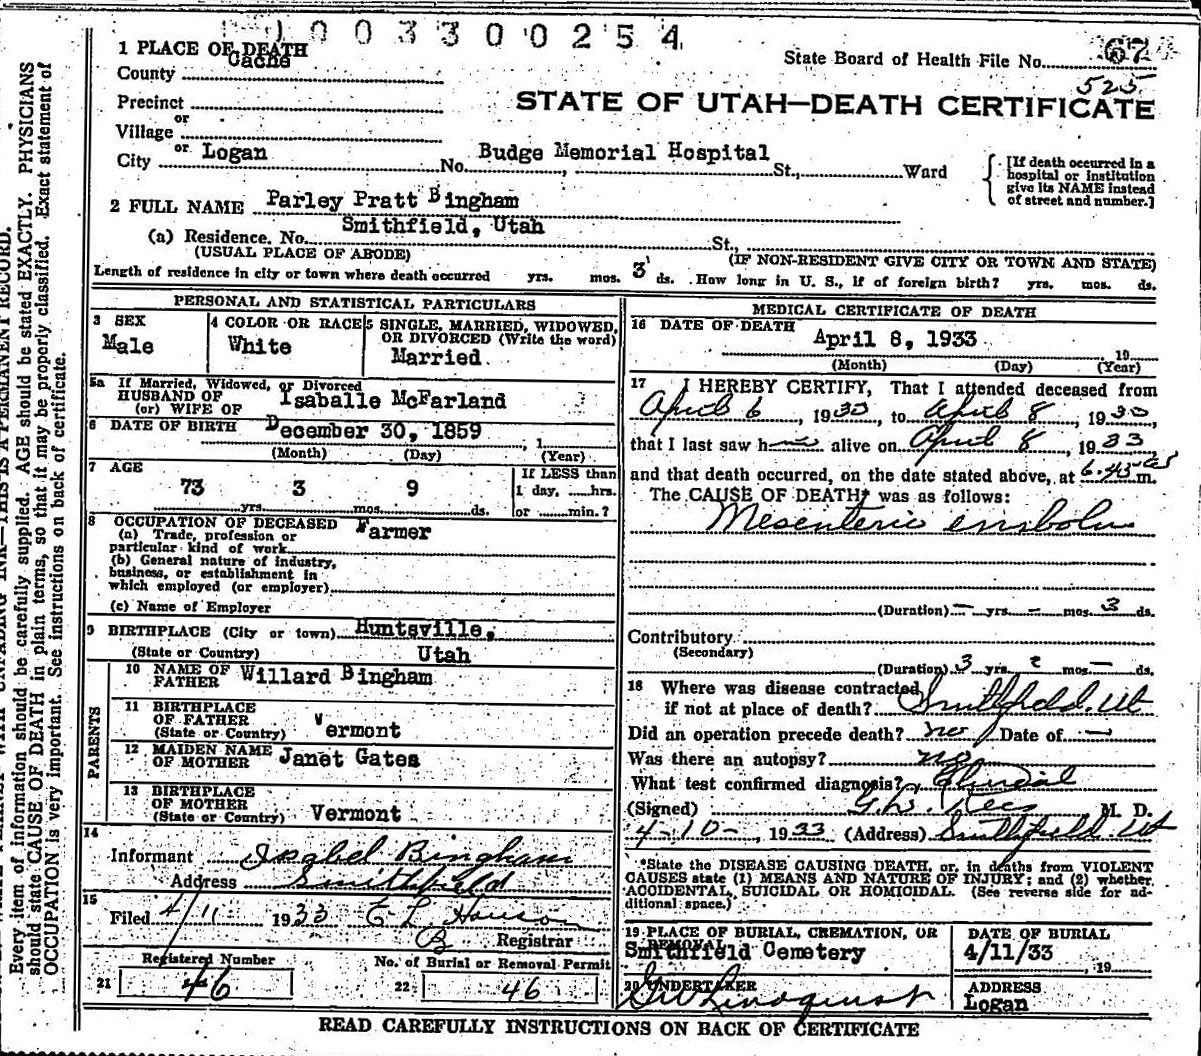 1003300254
1 PLACE OF DEATH
State Board of Health File No. 67
Cache
County
525
STATE OF UTAH—DEATH CERTIFICATE
Precinct
or
Village
or
City Logan No. Budge Memorial Hospital St., Ward
[If death occurred in a hospital or institution give its NAME instead of street and number.]
2 FULL NAME Parley Pratt Bingham
(a) Residence, No. Smithfield, Utah St.,
(USUAL PLACE OF ABODE) (IF NON-RESIDENT GIVE CITY OR TOWN AND STATE)
Length of residence in city or town where death occurred yrs. mos. 3 ds. How long in U. S., if of foreign birth? yrs. mos. ds.
PERSONAL AND STATISTICAL PARTICULARS
3 SEX
Male
4 COLOR OR RACE
White
5 SINGLE, MARRIED, WIDOWED,
OR DIVORCED (Write the word)
Married
5a If Married, Widowed, or Divorced
HUSBAND OF
(or) WIFE OF Isaballe McFarland
6 DATE OF BIRTH December 30, 1859, 1
(Month) (Day) (Year)
7 AGE
73 3 9
yrs. mos. ds.
If LESS than
1 day, hrs.
or min.?
8 OCCUPATION OF DECEASED Farmer
(a) Trade, profession or
particular kind of work
(b) General nature of industry,
business, or establishment in
which employed (or employer)
(c) Name of Employer
9 BIRTHPLACE (City or town) Huntsville,
(State or Country) Utah
PARENTS
10 NAME OF
FATHER Willard Bingham
11 BIRTHPLACE
OF FATHER
(State or Country) Vermont
12 MAIDEN NAME
OF MOTHER Janet Gates
13 BIRTHPLACE
OF MOTHER
(State or Country) Vermont
14
Informant Isabel Bingham
Address Smithfield
15
Filed 4/11 1933
Registrar
Registered Number
21 46
No. of Burial or Removal Permit
22 46
MEDICAL CERTIFICATE OF DEATH
16 DATE OF DEATH
April 8, 1933
19
(Month) (Day) (Year)
17 I HEREBY CERTIFY, That I attended deceased from
April 6, 1933, to April 8, 1933
that I last saw h alive on April 8, 1933
and that death occurred, on the date stated above, at 6.45 m.
The CAUSE OF DEATH* was as follows:
Mesenteric embolus
(Duration) — yrs. - mos. 3 ds.
Contributory
(Secondary)
(Duration) 3 yrs. 2 mos. — ds.
18 Where was disease contracted
if not at place of death? Smithfield, Ut
Did an operation precede death? no Date of —
Was there an autopsy? no
What test confirmed diagnosis? Clinical
(Signed) M. D.
4-10-, 1933 (Address) Smithfield Ut
*State the DISEASE CAUSING DEATH, or, in deaths from VIOLENT
CAUSES state (1) MEANS AND NATURE OF INJURY; and (2) whether
ACCIDENTAL, SUICIDAL OR HOMICIDAL. (See reverse side for ad-
ditional space.)
19 PLACE OF BURIAL, CREMATION, OR
REMOVAL
Smithfield Cemetery
DATE OF BURIAL
4/11/33
, 19
20 UNDERTAKER
G W Lindquist
ADDRESS
Logan
READ CAREFULLY INSTRUCTIONS ON BACK OF CERTIFICATE
THIS IS A PERMANENT RECORD.
Every item of information should be carefully supplied. AGE should be stated EXACTLY. PHYSICIANS
should state CAUSE OF DEATH in plain terms, so that it may be properly classified. Exact statement of
OCCUPATION is very important. See instructions on back of certificate.